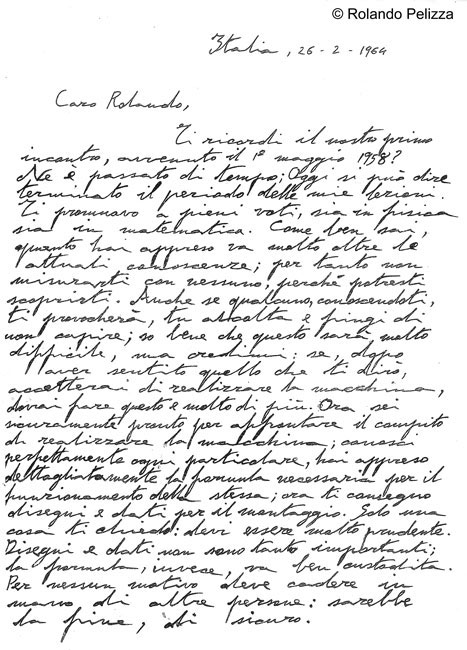 © Rolando Pelizza
Italia, 26 - 2 - 1964
Caro Rolando,
Ti ricordi il nostro primo
incontro, avvenuto il 1° maggio 1958?
Ne è passato di tempo; Oggi si può dire
terminato il periodo delle mie lezioni.
Ti promuovo a pieni voti, sia in fisica
sia in matematica. Come ben sai,
quanto hai appreso va molto oltre le
attuali conoscenze; per tanto non
misurarti con nessuno, perché potresti
scoprirti. Anche se qualcuno, conoscendoti,
ti provocherà, tu ascolta e fingi di
non capire; so bene che questo sarà molto
difficile, ma credimi: se, dopo
aver sentito quello che ti dirò,
accetterai di realizzare la macchina,
dovrai fare questo e molto di più. Ora sei
sicuramente pronto per affrontare il compito
di realizzare la macchina; conosci
perfettamente ogni particolare, hai appreso
dettagliatamente la formula necessaria per il
funzionamento della stessa; ora ti consegno
disegni e dati per il montaggio. Solo una
cosa ti chiedo: devi essere molto prudente.
Disegni e dati non sono tanto importanti;
la formula, invece, va ben custodita.
Per nessun motivo deve cadere in
mano di altre persone: sarebbe
la fine, di sicuro.